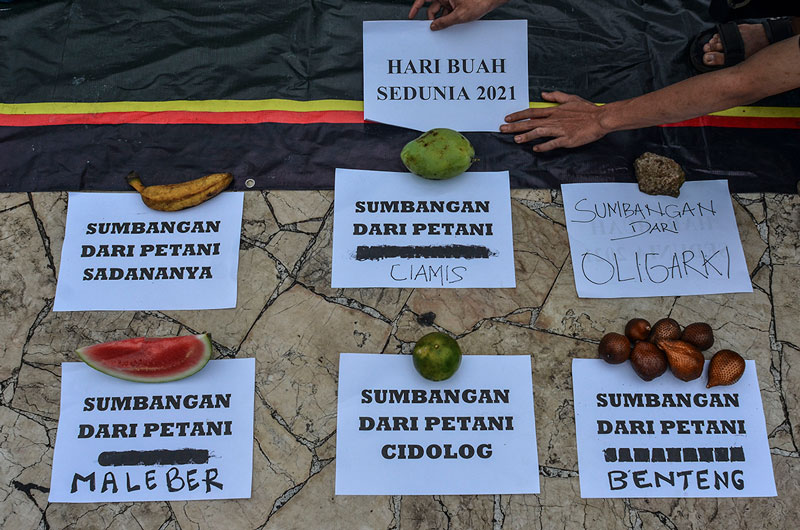 HARI BUAH
SEDUNIA 2021
SUMBANGAN
DARI PETANI
SADANANYA
SUMBANGAN
DARI PETANI
CIAMIS
SUMBANGAN
DARI
OLIGARKI
SUMBANGAN
DARI PETANI
MALEBER
SUMBANGAN
DARI PETANI
CIDOLOG
SUMBANGAN
DARI PETANI
BENTENG